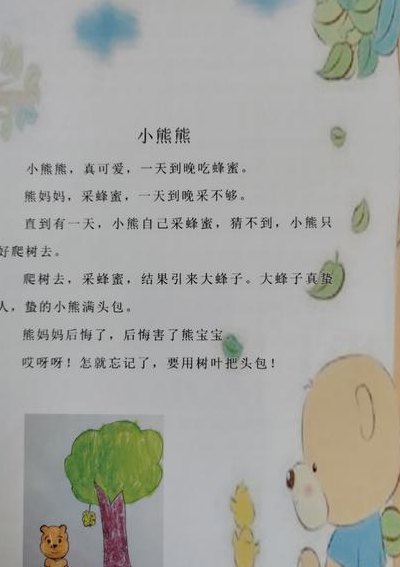 小熊熊
小熊熊，真可爱，一天到晚吃蜂蜜。
熊妈妈，采蜂蜜，一天到晚采不够。
直到有一天，小熊自己采蜂蜜，猜不到，小熊只
好爬树去。
爬树去，采蜂蜜，结果引来大蜂子。大蜂子真蛰
人，蛰的小熊满头包。
熊妈妈后悔了，后悔害了熊宝宝。
哎呀呀！怎就忘记了，要用树叶把头包！